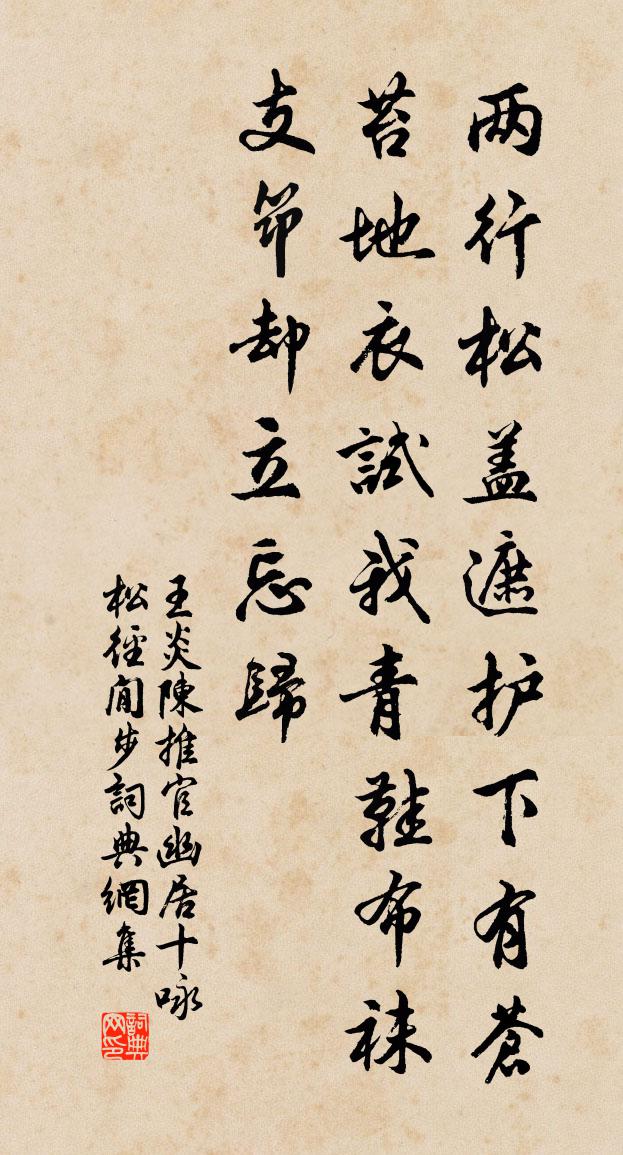 两行松盖遮护下有苍
苔地衣試我青鞋布袜
支筇却立忘歸
王炎陳推官幽居十咏
松徑閒步詞典網集
詞典网印